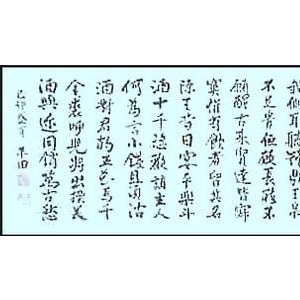 耳聽
不足貴但願長醉不
願醒古來聖賢皆寂
寞惟有飲者留其名
陳王昔日宴平樂斗
酒十千恣歡謔主人
何為言少錢且須沽
酒對君酌五花馬千
金裘呼兒將出換美
酒與迩同銷萬古愁
己卯